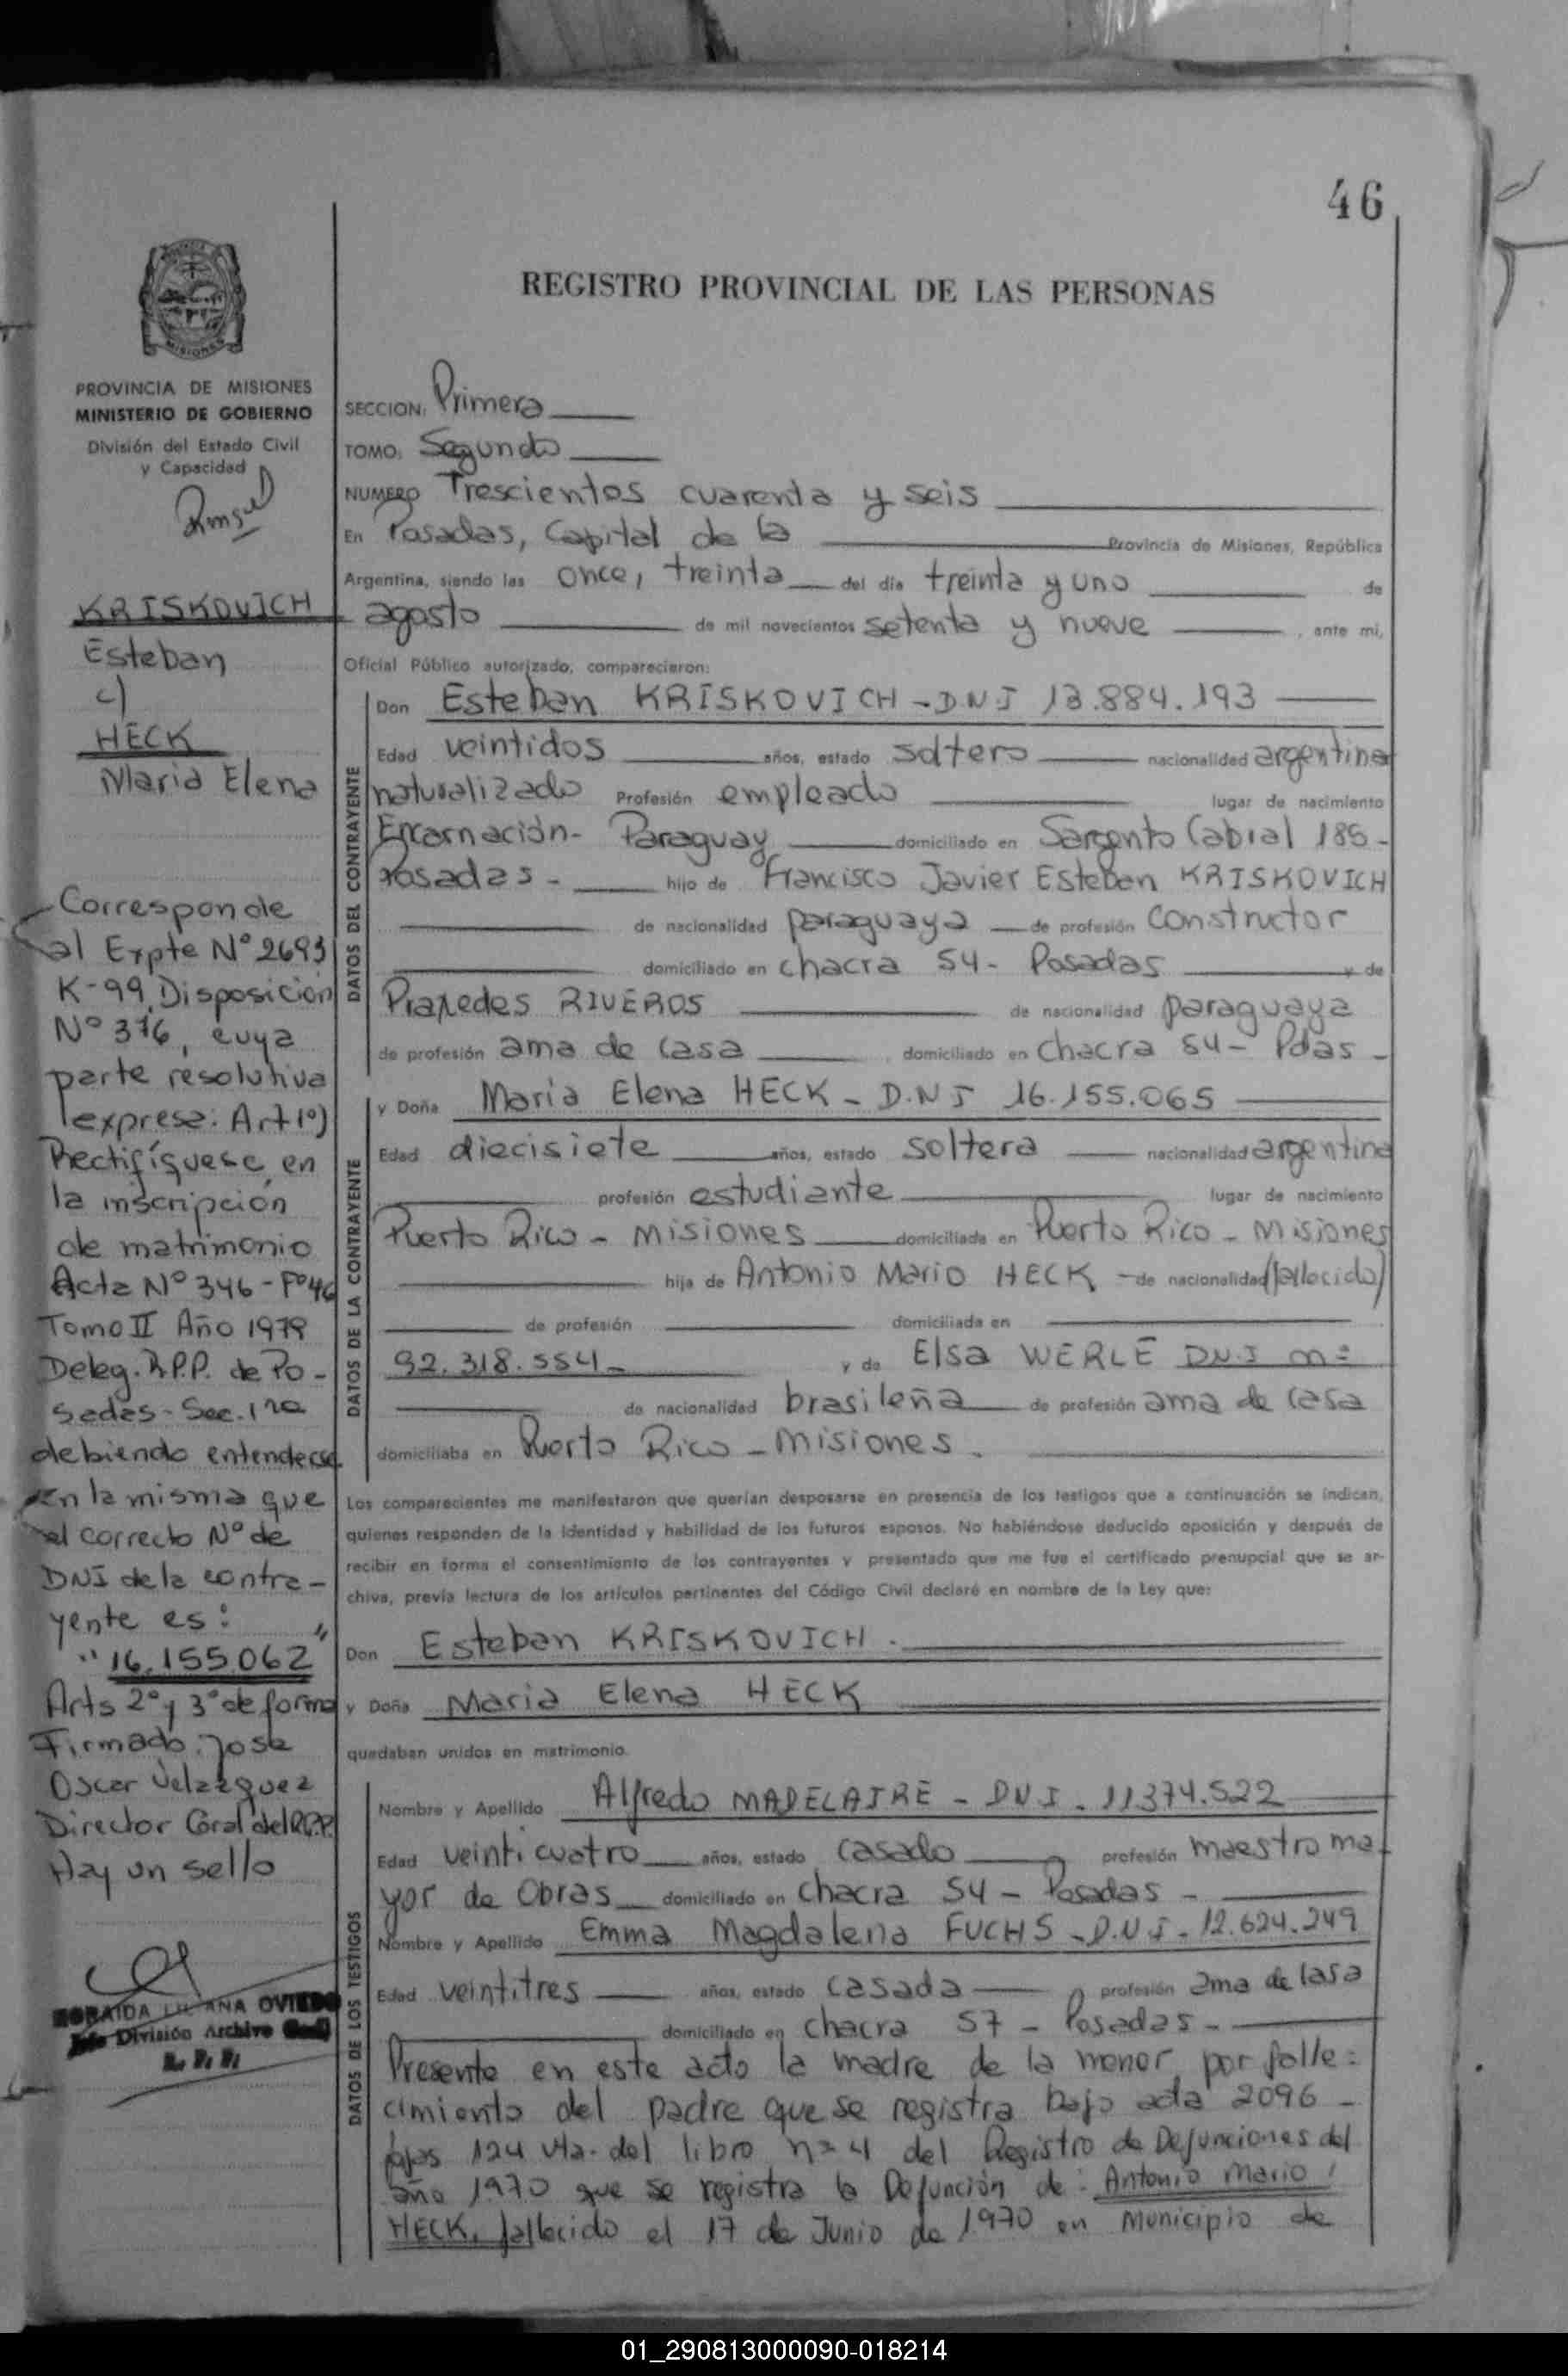 46
REGISTRO PROVINCIAL DE LAS PERSONAS
MISIONES
PROVINCIA DE MISIONES
MINISTERIO DE GOBIERNO
División del Estado Civil
y Capacidad
KRISKOVICH
Esteban
c/
HECK
Maria Elena
Corresponde
al Expte Nº 2693
K-99, Disposición
Nº 376, cuya
parte resolutiva
expresa: Art 1º)
Rectifíquese en
la inscripción
de matrimonio
Acta Nº 346 - Fº 46
Tomo II Año 1979
Deleg. R.P.P. de Po-
sadas - Sec. 1ra
debiendo entenderse
en la misma que
el correcto Nº de
DNI de la contra-
yente es:
"16.155.062"
Arts 2º y 3º de forma
Firmado: Jose
Oscar Velazquez
Director Gral del R.P.P.
Hay un sello
LILIANA OVIEDO
Jefe División Archivo Gral
R. P. P.
SECCION: Primera
TOMO: Segundo
NUMERO Trescientos cuarenta y seis
En Posadas, Capital de la Provincia de Misiones, República
Argentina, siendo las once, treinta del día treinta y uno de
agosto de mil novecientos setenta y nueve, ante mi,
Oficial Público autorizado, comparecieron:
DATOS DEL CONTRAYENTE
Don Esteban KRISKOVICH - D.N.I 13.884.193
Edad veintidos años, estado soltero nacionalidad argentina
naturalizado Profesión empleado lugar de nacimiento
Encarnación - Paraguay domiciliado en Sargento Cabral 185 -
Posadas - hijo de Francisco Javier Esteban KRISKOVICH
de nacionalidad paraguaya de profesión constructor
domiciliado en chacra 54 - Posadas y de
Praxedes RIVEROS de nacionalidad paraguaya
de profesión ama de casa domiciliado en chacra 54 - Pdas -
DATOS DE LA CONTRAYENTE
y Doña Maria Elena HECK - D.N.I 16.155.065
Edad diecisiete años, estado soltera nacionalidad argentina
profesión estudiante lugar de nacimiento
Puerto Rico - Misiones domiciliada en Puerto Rico - Misiones
hija de Antonio Mario HECK - de nacionalidad (fallecido)
de profesión domiciliada en
92.318.554 - y de Elsa WERLE D.N.I nº
de nacionalidad brasileña de profesión ama de casa
domiciliaba en Puerto Rico - Misiones.
Los comparecientes me manifestaron que querían desposarse en presencia de los testigos que a continuación se indican,
quienes responden de la identidad y habilidad de los futuros esposos. No habiéndose deducido oposición y después de
recibir en forma el consentimiento de los contrayentes y presentado que me fue el certificado prenupcial que se ar-
chiva, previa lectura de los artículos pertinentes del Código Civil declaré en nombre de la Ley que:
Don Esteban KRISKOVICH.
y Doña Maria Elena HECK
quedaban unidos en matrimonio.
DATOS DE LOS TESTIGOS
Nombre y Apellido Alfredo MADELAIRE - D.N.I. 11374.522
Edad veinticuatro años, estado casado profesión maestro ma-
yor de Obras domiciliado en chacra 54 - Posadas -
Nombre y Apellido Emma Magdalena FUCHS - D.N.I. 12.624.249
Edad veintitres años, estado casada profesión ama de casa
domiciliado en chacra 57 - Posadas -
Presente en este acto la madre de la menor por falle=
cimiento del padre que se registra bajo acta 2096 -
fojas 124 vta. del libro nº 4 del Registro de Defunciones del
año 1970 que se registra la Defunción de: Antonio Mario
HECK, fallecido el 17 de Junio de 1970 en Municipio de
01_290813000090-018214